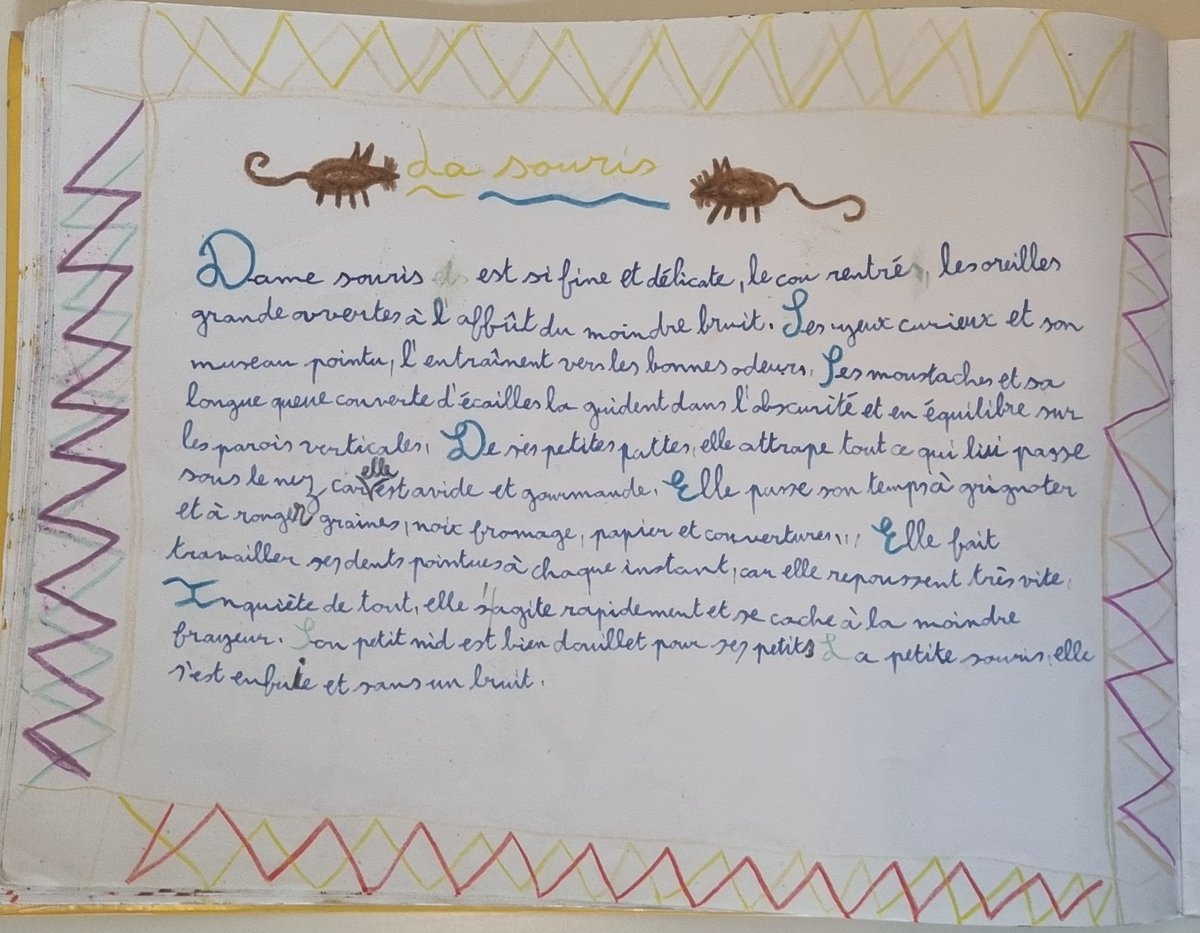 La souris
Dame souris est si fine et délicate, le cou rentré, les oreilles
grande ouvertes à l'affût du moindre bruit. Ses yeux curieux et son
museau pointu, l'entraînent vers les bonnes odeurs. Ses moustaches et sa
longue queue couverte d'écailles la guident dans l'obscurité et en équilibre sur
les parois verticales. De ses petites pattes, elle attrape tout ce qui lui passe
sous le nez car elle est avide et gourmande. Elle passe son temps à grignoter
et à ronger graines, noix fromage, papier et couvertures... Elle fait
travailler ses dents pointues à chaque instant, car elle repoussent très vite.
Inquiète de tout, elle s'agite rapidement et se cache à la moindre
frayeur. Son petit nid est bien douillet pour ses petits La petite souris, elle
s'est enfuie et sans un bruit.